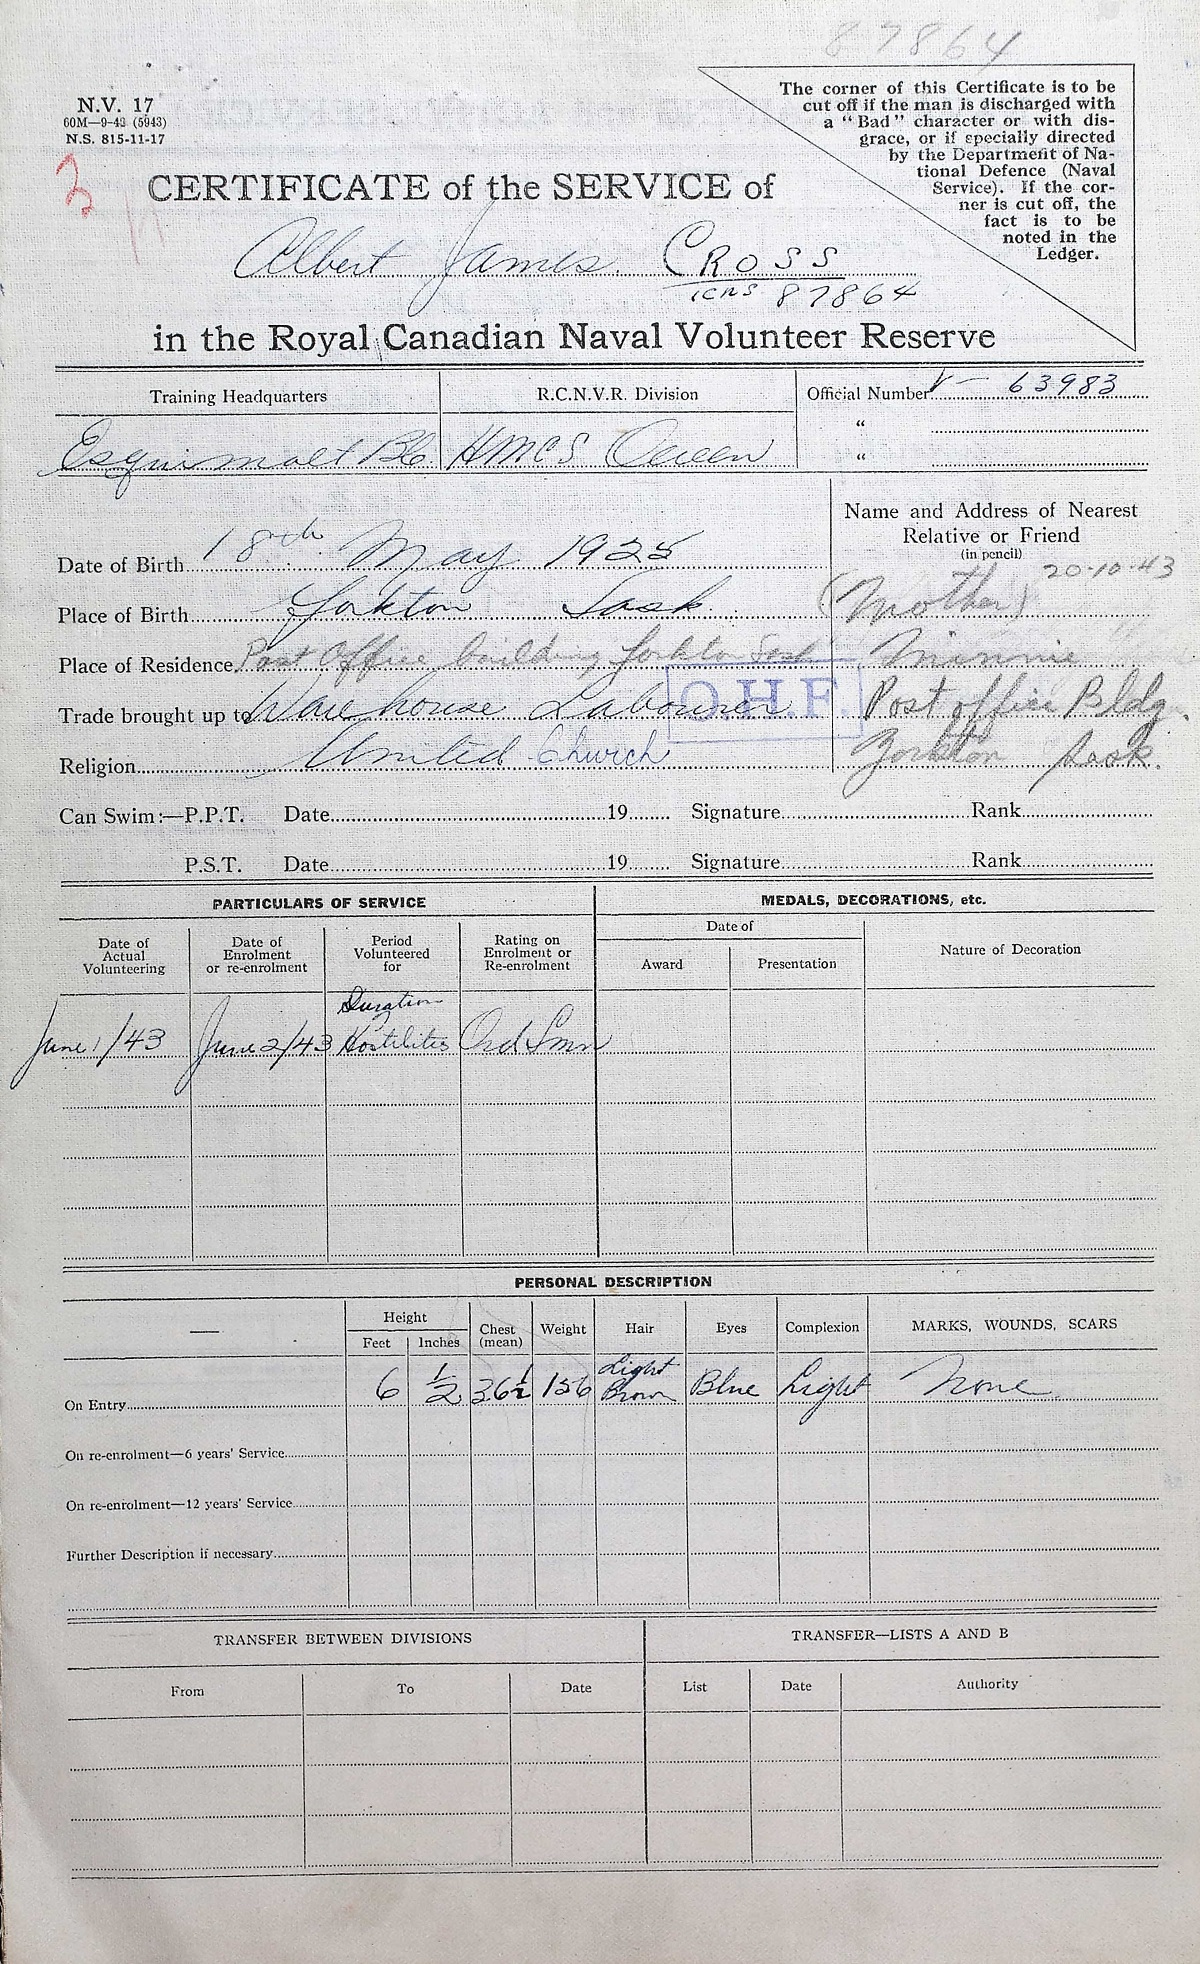 87864
N.V. 17
60M—9-43 (5943)
N.S. 815-11-17
The corner of this Certificate is to be
cut off if the man is discharged with
a "Bad" character or with dis-
grace, or if specially directed
by the Department of Na-
tional Defence (Naval
Service). If the cor-
ner is cut off, the
fact is to be
noted in the
Ledger.
3
CERTIFICATE of the SERVICE of
Albert James CROSS
87864
in the Royal Canadian Naval Volunteer Reserve
Training Headquarters R.C.N.V.R. Division Official Number V- 63983
"
Esquimalt BC HMCS Queen "
Name and Address of Nearest
Relative or Friend
(in pencil)
20-10-43
Date of Birth 18th May 1925
Place of Birth Yorkton Sask. (Mother)
Place of Residence Post Office building Yorkton Sask Minnie
Trade brought up to Warehouse Labourer O.H.F. Post office Bldg.
Religion United Church Yorkton Sask.
Can Swim:—P.P.T. Date 19 Signature Rank
P.S.T. Date 19 Signature Rank
PARTICULARS OF SERVICE MEDALS, DECORATIONS, etc.
Date of Actual Volunteering Date of Enrolment or re-enrolment Period Volunteered for Rating on Enrolment or Re-enrolment Date of Award Presentation Nature of Decoration
Duration
June 1/43 June 2/43 Hostilities Ord Smn
PERSONAL DESCRIPTION
— Height Feet Inches Chest (mean) Weight Hair Eyes Complexion MARKS, WOUNDS, SCARS
On Entry 6 1/2 36 1/2 156 Light Brown Blue Light None
On re-enrolment—6 years' Service
On re-enrolment—12 years' Service
Further Description if necessary
TRANSFER BETWEEN DIVISIONS TRANSFER—LISTS A AND B
From To Date List Date Authority